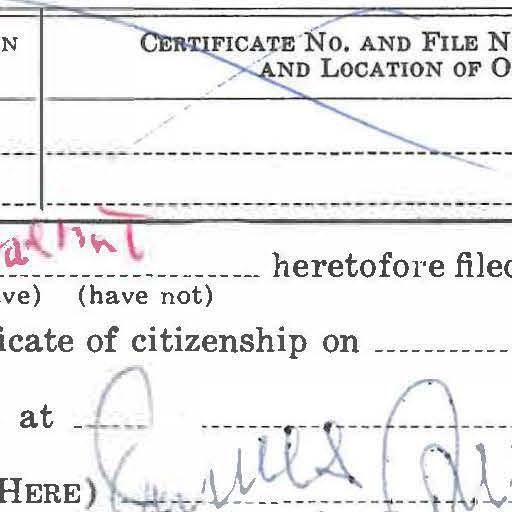 N CERTIFICATE NO. AND FILE N
AND LOCATION OF O
heretofore filed
ve) (have not)
icate of citizenship on
at
HERE)